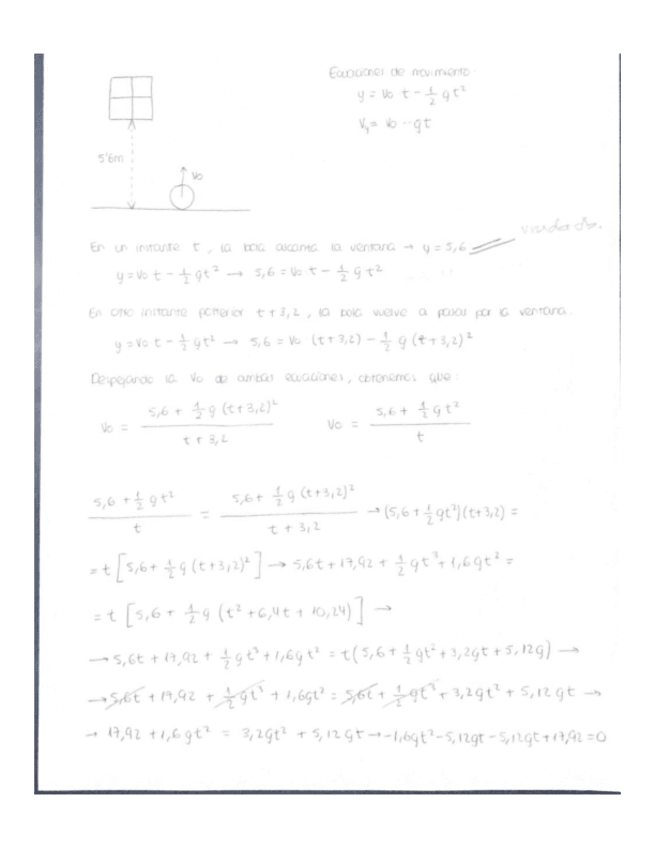 Ecuaciones de movimiento:
y = Vo t - 1/2 gt²
Vy = Vo - gt
5'6m
Vo
En un instante t, la bola alcanza la ventana → y = 5,6
y = Vo t - 1/2 gt² → 5,6 = Vo t - 1/2 gt²
En otro instante posterior t+3,2, la bola vuelve a pasar por la ventana.
y = Vo t - 1/2 gt² → 5,6 = Vo (t+3,2) - 1/2 g (t+3,2)²
Despejando la Vo de ambas ecuaciones, obtenemos que:
Vo = (5,6 + 1/2 g (t+3,2)²) / (t + 3,2)    Vo = (5,6 + 1/2 gt²) / t
(5,6 + 1/2 gt²) / t = (5,6 + 1/2 g (t+3,2)²) / (t + 3,2) → (5,6 + 1/2 gt²)(t+3,2) =
= t [5,6 + 1/2 g (t+3,2)²] → 5,6t + 17,92 + 1/2 gt³ + 1,6gt² =
= t [5,6 + 1/2 g (t² + 6,4t + 10,24)] →
→ 5,6t + 17,92 + 1/2 gt³ + 1,6gt² = t(5,6 + 1/2 gt² + 3,2gt + 5,12g) →
→ 5,6t + 17,92 + 1/2 gt³ + 1,6gt² = 5,6t + 1/2 gt³ + 3,2gt² + 5,12gt →
→ 17,92 + 1,6gt² = 3,2gt² + 5,12gt → -1,6gt² - 5,12gt - 5,12gt + 17,92 = 0